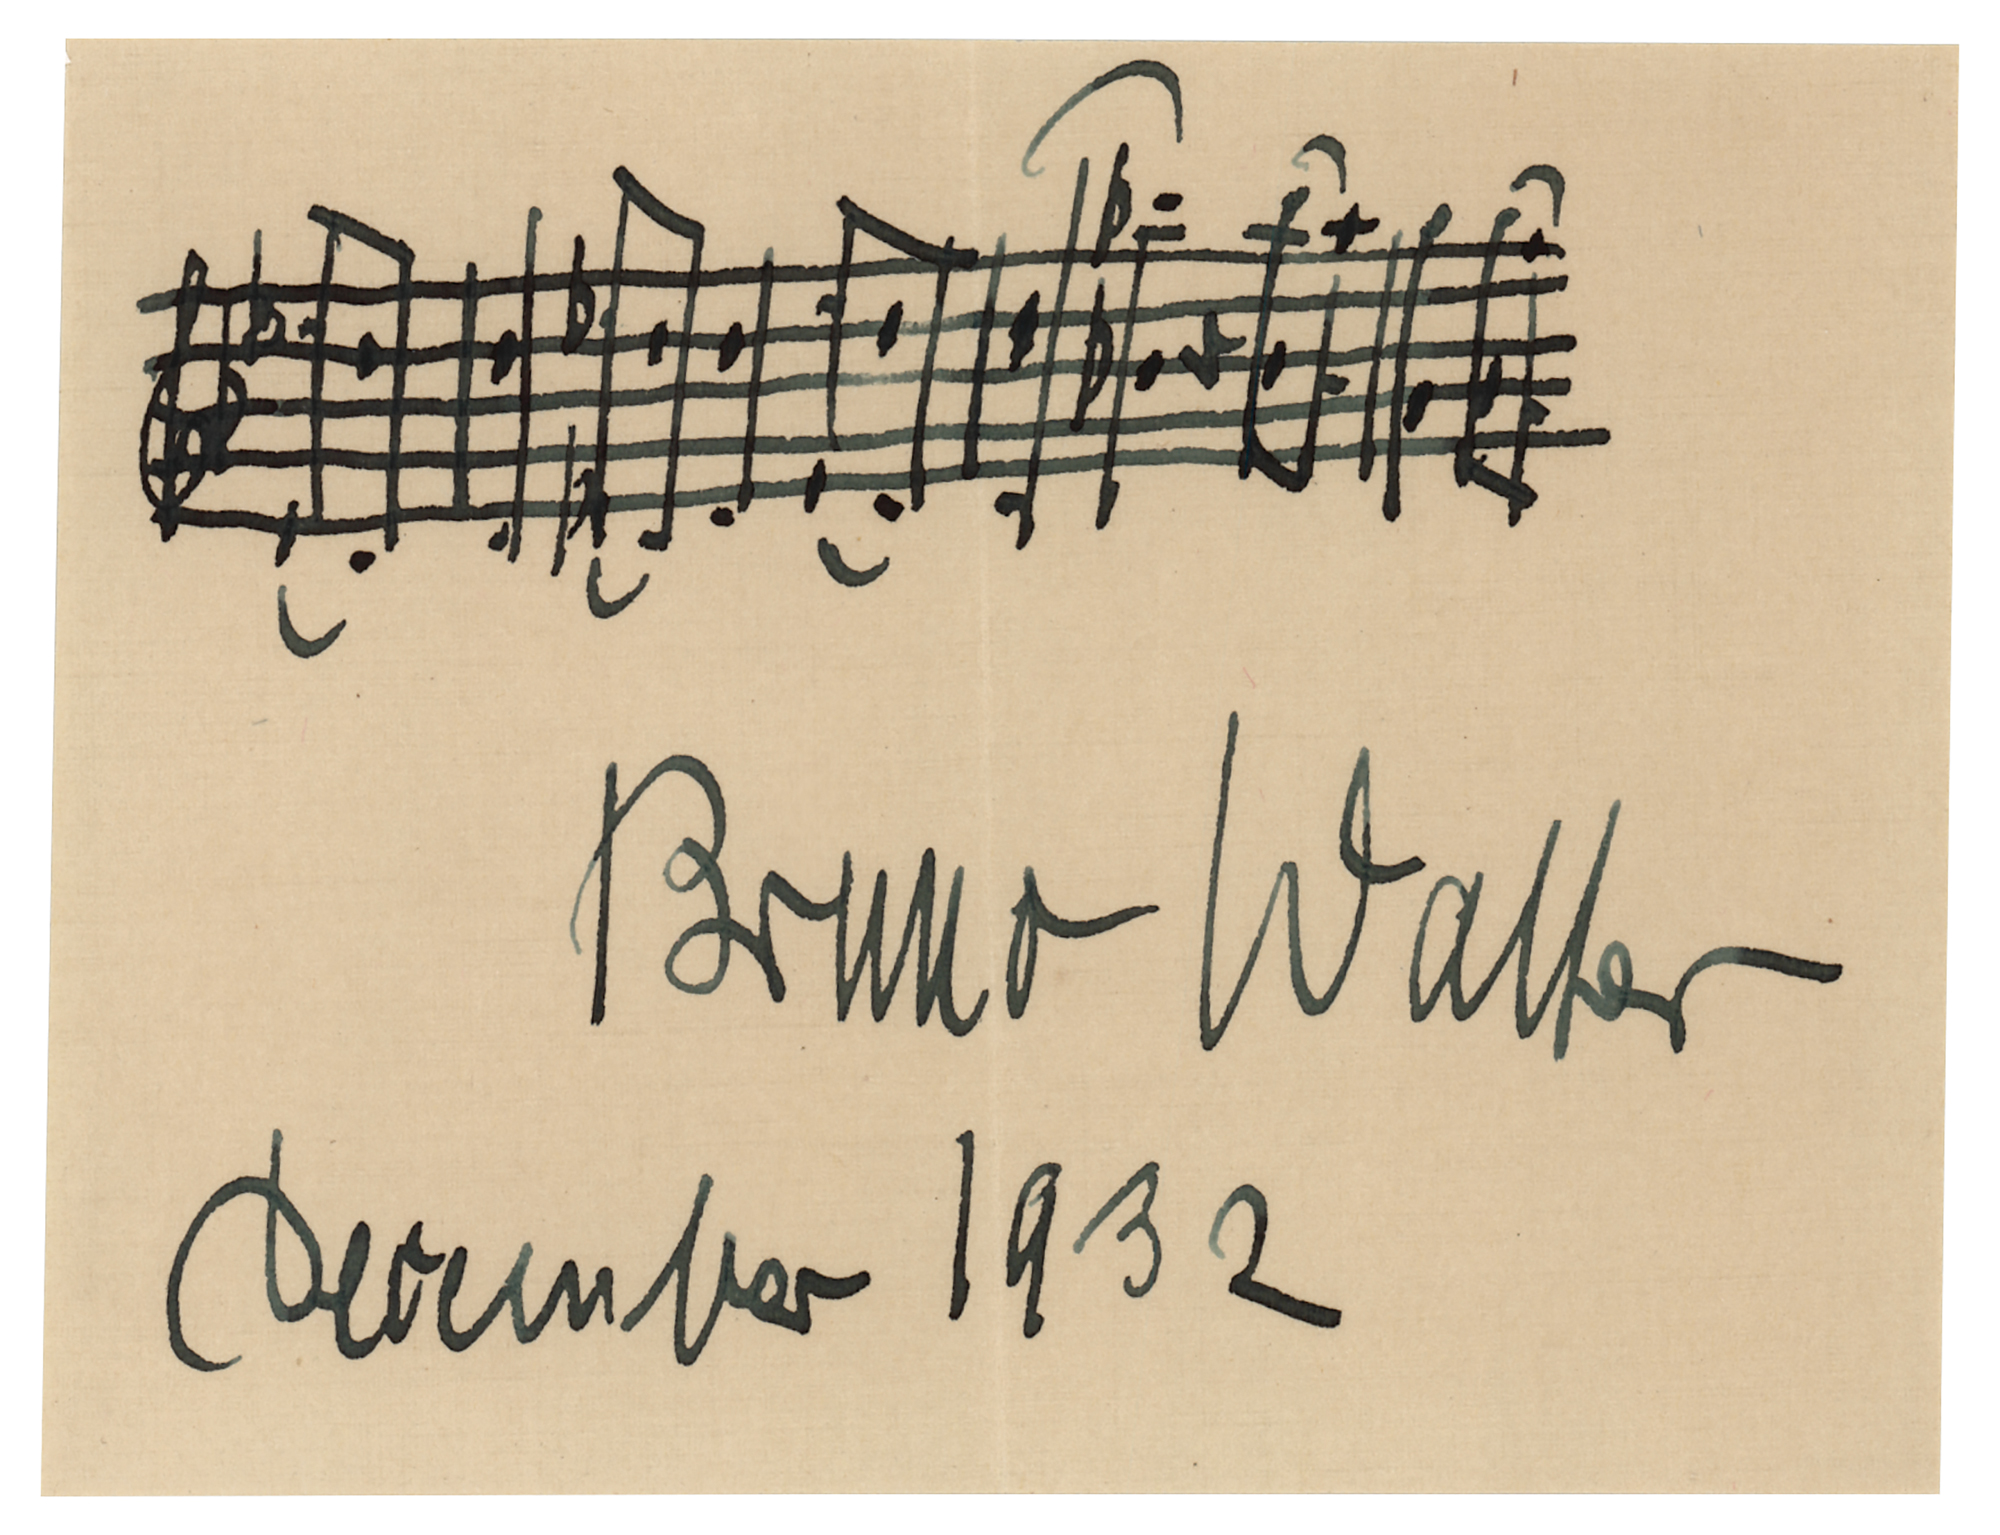 Bruno Walter
Dezember 1932